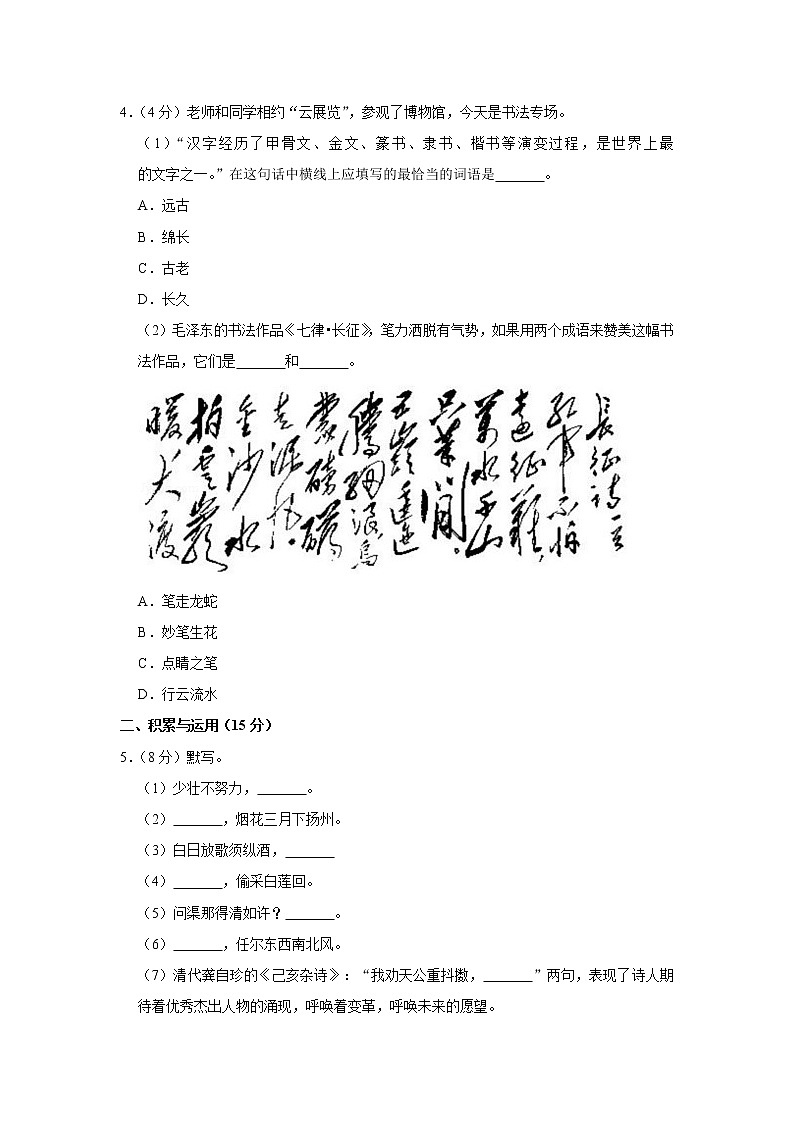 4.(4 分)老师和同学相约“云展览”，参观了博物馆，今天是书法专场。
(1)“汉字经历了甲骨文、金文、篆书、隶书、楷书等演变过程，是世界上最
的文字之一。”在这句话中横线上应填写的最恰当的词语是_______。
A.远古
B.绵长
C.古老
D.长久
(2)毛泽东的书法作品《七律•长征》，笔力洒脱有气势，如果用两个成语来赞美这幅书
法作品，它们是_______和_______。
長征诗一首
红军不怕
遠征難，
萬水千山
只等閒。
五嶺逶迤
騰细浪，烏
蒙磅礴
走泥丸。
金沙水
拍雲崖
暖，大渡
A.笔走龙蛇
B.妙笔生花
C.点睛之笔
D.行云流水
二、积累与运用(15 分)
5.(8 分)默写。
(1)少壮不努力，_______。
(2)_______，烟花三月下扬州。
(3)白日放歌须纵酒，_______
(4)_______，偷采白莲回。
(5)问渠那得清如许？_______。
(6)_______，任尔东西南北风。
(7)清代龚自珍的《己亥杂诗》：“我劝天公重抖擞，_______”两句，表现了诗人期
待着优秀杰出人物的涌现，呼唤着变革，呼唤未来的愿望。